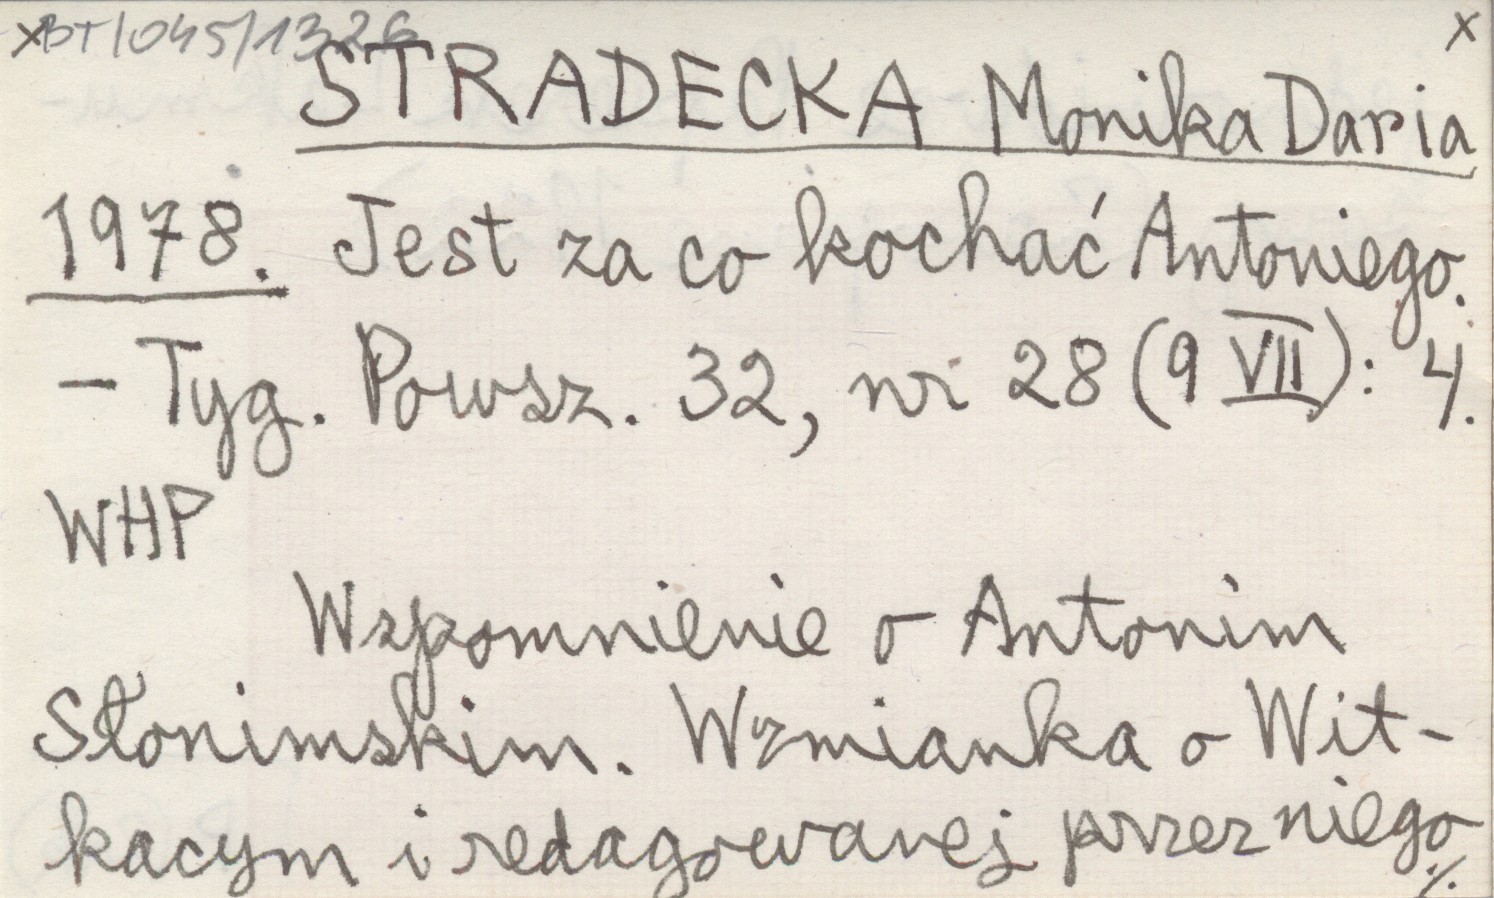 xBT/045/1326 x
STRADECKA Monika Daria
1978. Jest za co kochać Antoniego.
- Tyg. Powsz. 32, nr 28 (9 VII): 4.
WHP
Wspomnienie o Antonim
Słonimskim. Wzmianka o Wit-
kacym i redagowanej przez niego
./.